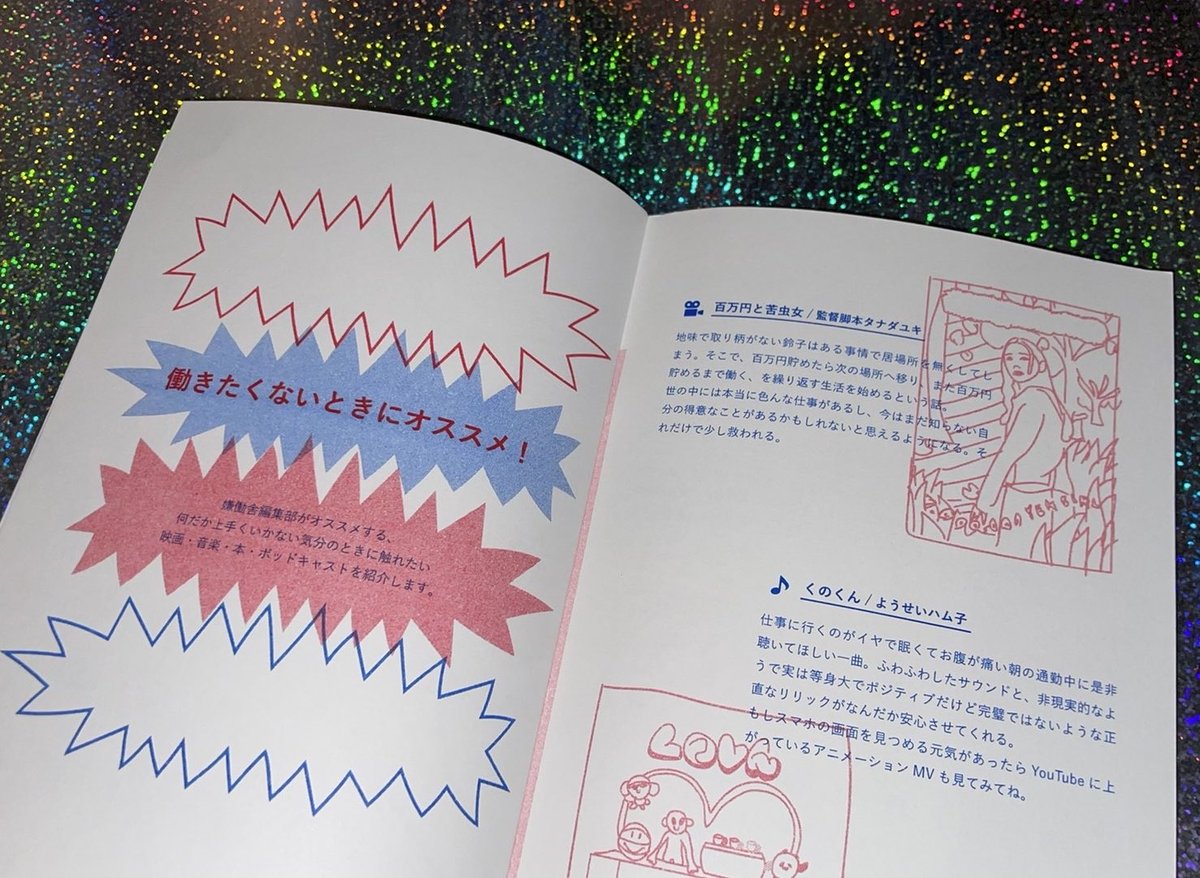 働きたくないときにオススメ！
嫌働舎編集部がオススメする、
何だか上手くいかない気分のときに触れたい
映画・音楽・本・ポッドキャストを紹介します。
百万円と苦虫女 / 監督脚本タナダユキ
地味で取り柄がない鈴子はある事情で居場所を無くしてし
まう。そこで、百万円貯めたら次の場所へ移り、また百万円
貯めるまで働く、を繰り返す生活を始めるという話。
世の中には本当に色んな仕事があるし、今はまだ知らない自
分の得意なことがあるかもしれないと思えるようになる。そ
れだけで少し救われる。
くのくん / ようせいハム子
仕事に行くのがイヤで眠くてお腹が痛い朝の通勤中に是非
聴いてほしい一曲。ふわふわしたサウンドと、非現実的なよ
うで実は等身大でポジティブだけど完璧ではないような正
直なリリックがなんだか安心させてくれる。
もしスマホの画面を見つめる元気があったら YouTube に上
がっているアニメーション MV も見てみてね。